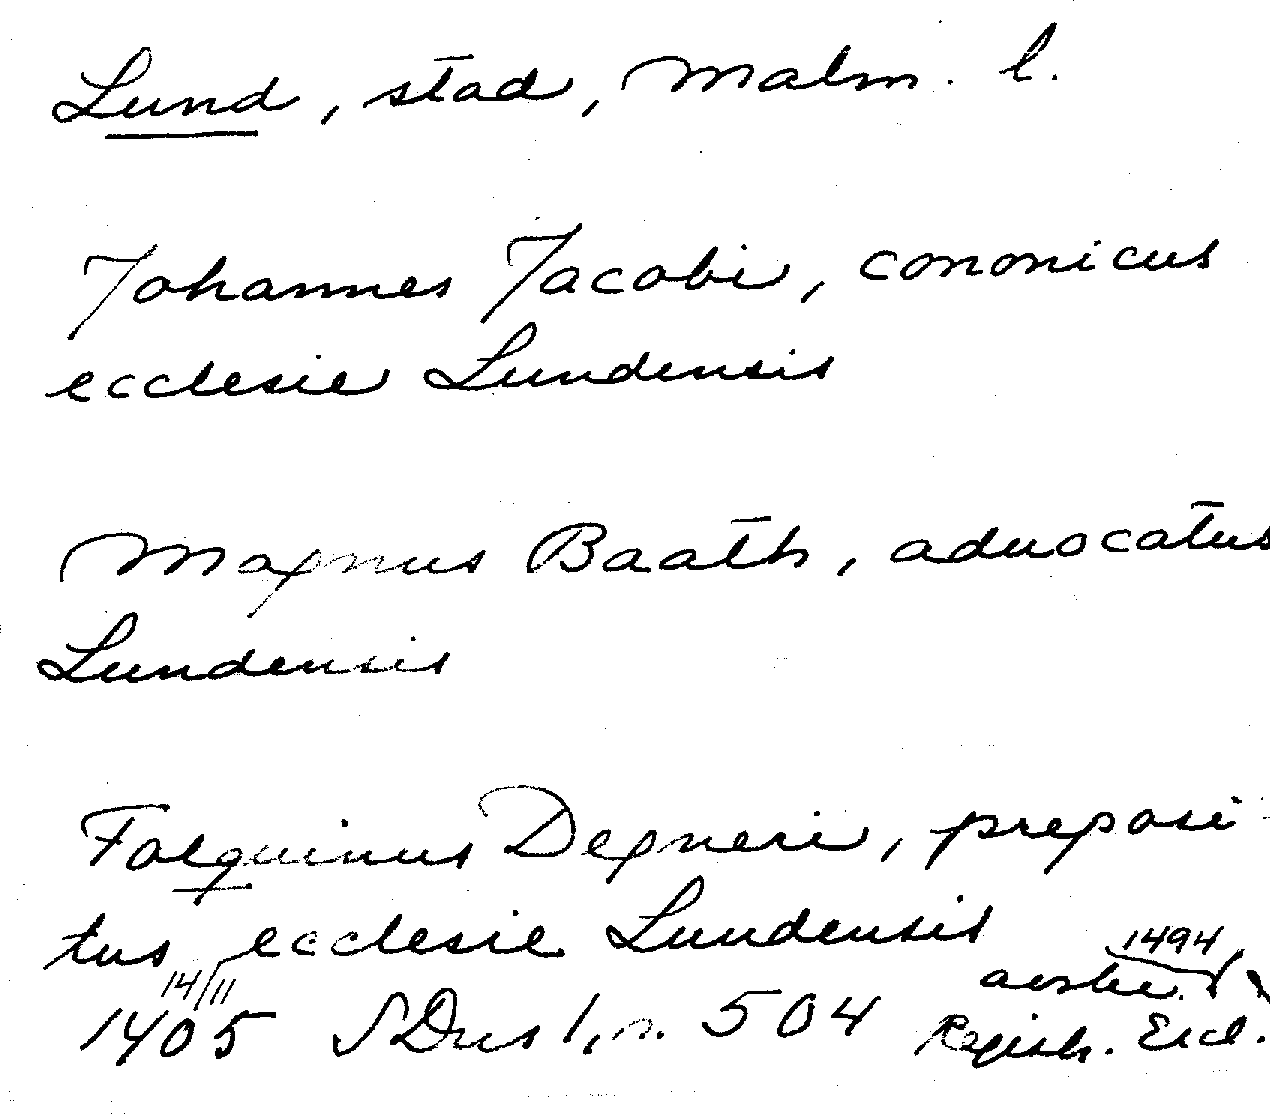 Lund, stad, Malm. l.
Johannes Jacobi, canonicus
ecclesie Lundensis
Magnus Baath, aduocatus
Lundensis
Folquinus Degneri, preposi
tus ecclesie Lundensis
1494
14/11
1405 SDns 1, n. 504
Registr. Eccl.